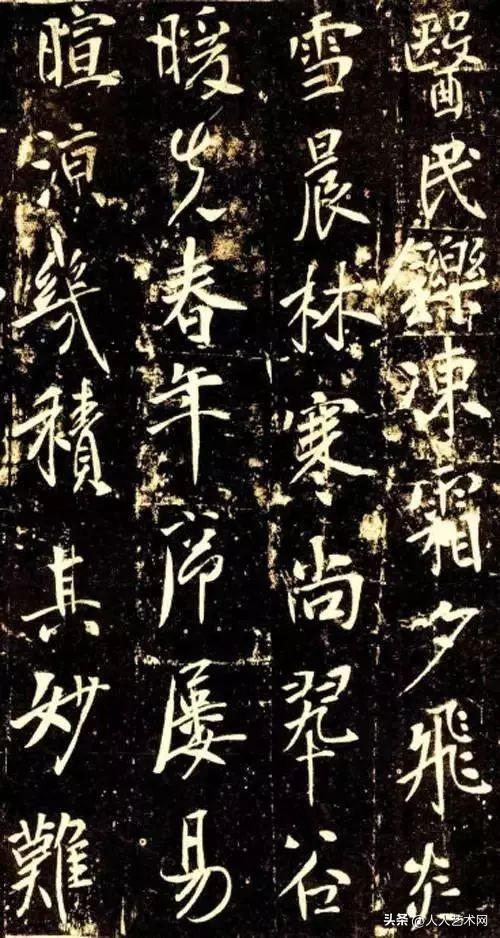 醫民鑠凍霜夕飛炎
雪晨林寒尚翠谷
暖先春年帝屢易
暄涼幾積其妙難
头条 @人人艺术网